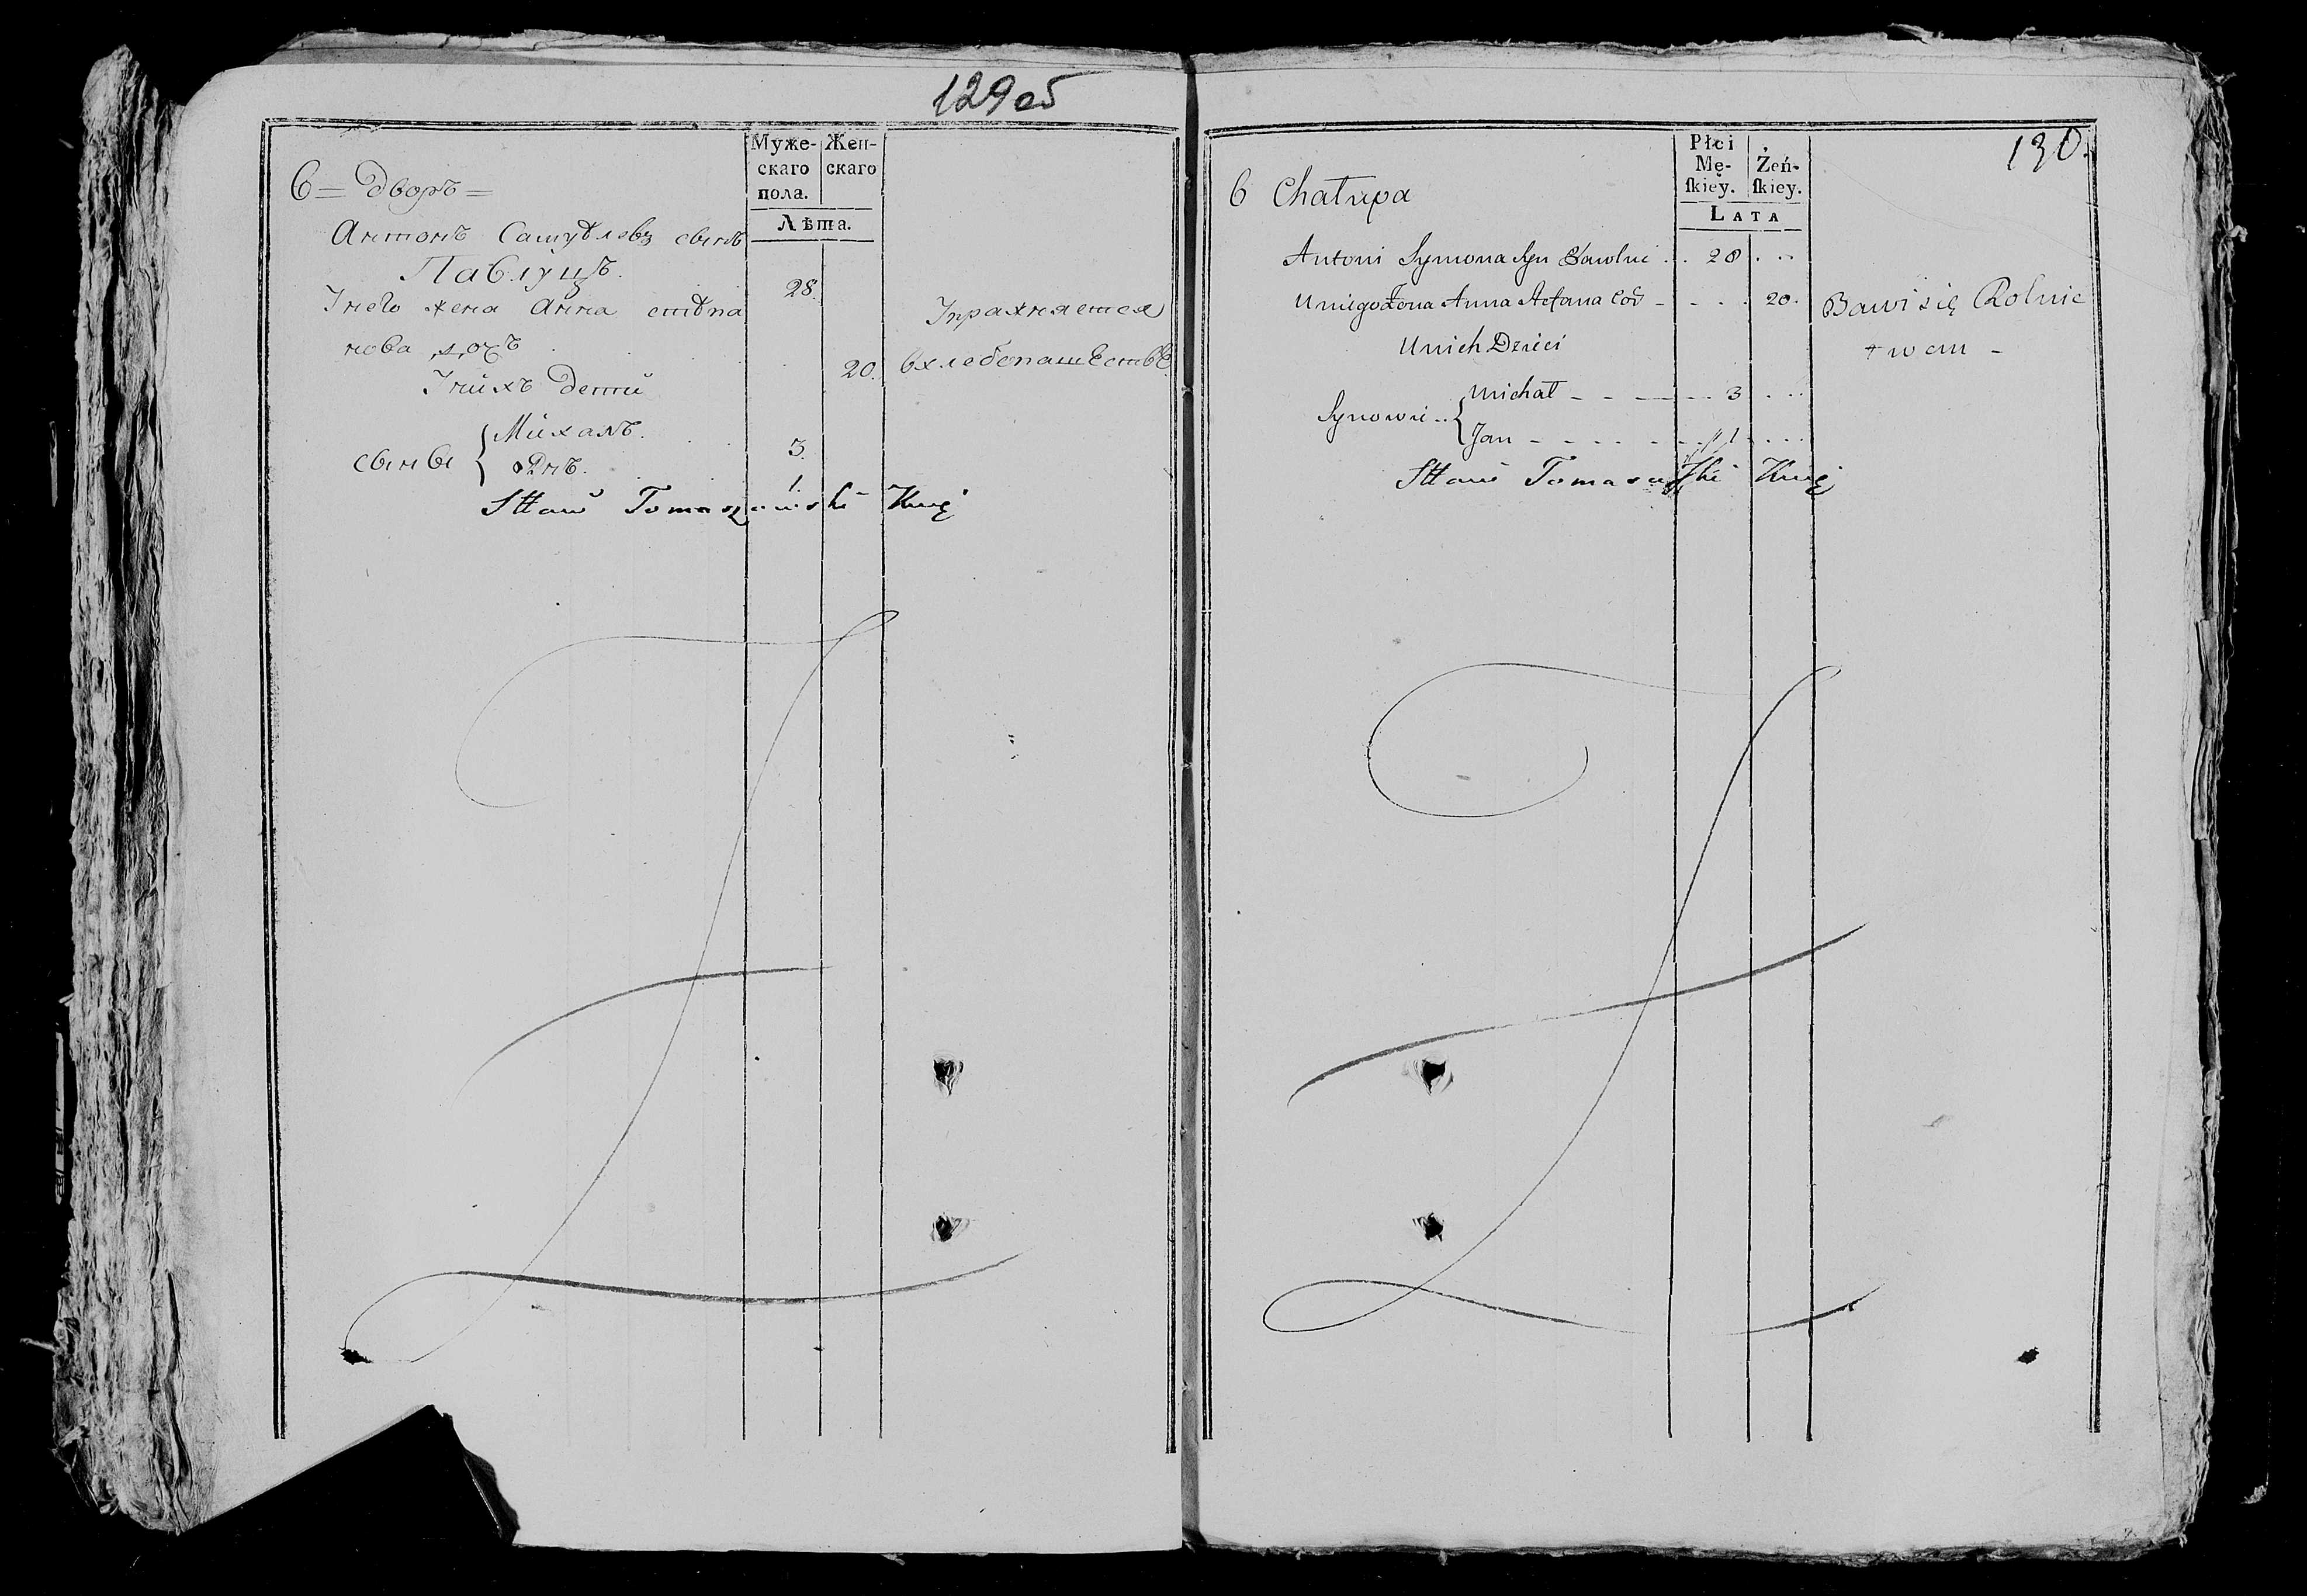 129об
Муже-
скаго
пола.
Жен-
скаго
Лѣта.
6 = дворъ =
Антонъ Самуѣловъ сынъ 28.
Павлуць.
Унего жена Анна стѣпа
нова дочь 20.
Упражняется
вхлебопашествѣ
Унихъ дети
сыны { Михалъ. 3.
Янъ. 1.
Sław Tomaszewski Kxię
130.
Płci
Mę-
ſkiey.
Żeń-
ſkiey.
LATA
6 Chałupa
Antoni Symona Syn Pawluc . . 28 . . .
Uniego Żona Anna Stefana Cór - - - . 20.
Bawi się Rolnic
twem -
Unich Dzieci
Synowie .. { Michał - - - - - - 3 . . .
Jan - - - - - - 1 . . .
Sław Tomaszewſki Kxię